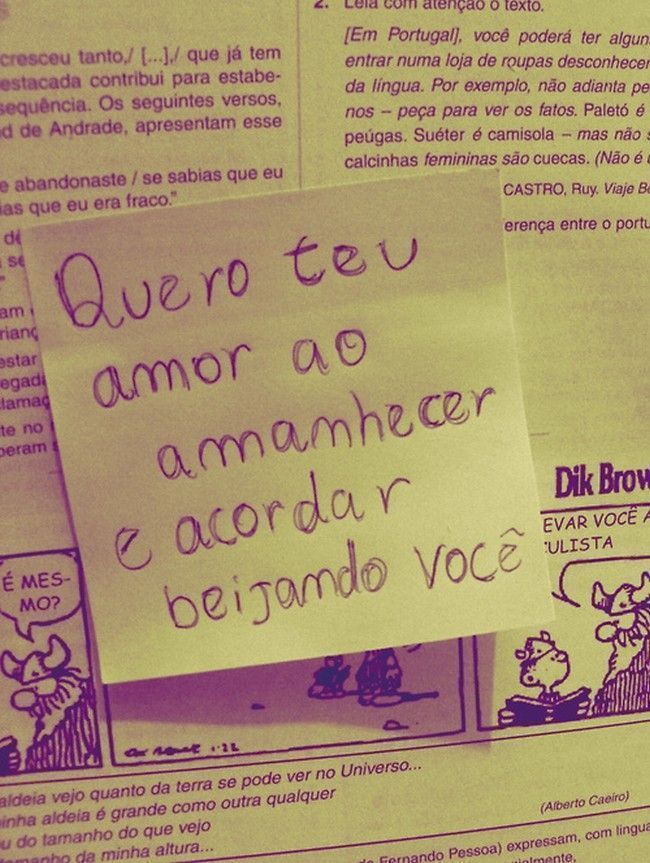 cresceu tanto,/ [...],/ que já tem
estacada contribui para estabe-
sequência. Os seguintes versos,
d de Andrade, apresentam esse
e abandonaste / se sabias que eu
ias que eu era fraco."
2. Leia com atenção o texto.
[Em Portugal], você poderá ter algun
entrar numa loja de roupas desconhecen
da língua. Por exemplo, não adianta pe
nos – peça para ver os fatos. Paletó é
peúgas. Suéter é camisola – mas não s
calcinhas femininas são cuecas. (Não é u
CASTRO, Ruy. Viaje Be
erença entre o portu
Quero teu
amor ao
amanhecer
e acordar
beijando você
estar
te no
peram
Dik Brow
EVAR VOCÊ A
ULISTA
É MES-
MO?
aldeia vejo quanto da terra se pode ver no Universo...
inha aldeia é grande como outra qualquer
u do tamanho do que vejo
amanho da minha altura...
(Alberto Caeiro)
Fernando Pessoa) expressam, com lingua